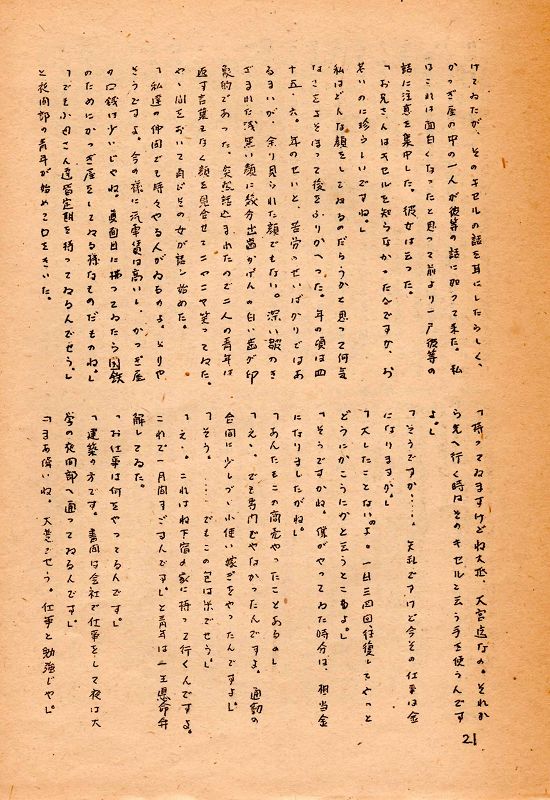 けてゐたが、そのキセルの話を耳にしたらしく、
かつぎ屋の中の一人が彼等の話に加つて来た。私
はこれは面白くなつたと思つて前より一層彼等の
話に注意を集中した。彼女は云つた。
「お兄さんはキセルを知らなかつたんですか、お
若いのに珍らしいですね。」
私はどんな顔をしてゐるのだらうかと思つて何気
なさをよそほつて後をふりかへつた。年の頃は四
十五・六。年のせいと、苦労のせいばかりではあ
るまいが、余り見られた顔でもない。深い皺のき
ざまれた浅黒い顔に幾分出歯かげんの白い歯が印
象的であつた。突然話込まれたので二人の青年は
返す言葉もなく顔を見合せてニヤニヤ笑つてゐた。
やゝ間をおいて再びその女が話し始めた。
「私達の仲間でも時々やる人がゐるのよ。とりや
さうですよ。今の様に汽車賃は高いし、かつぎ屋
の口銭は少いしやね。真面目に拂つてゐたら国鉄
のためにかつぎ屋をしてゐる様なものだものね。」
「でも小母さん達皆定期を持つてゐるんでせう。」
と夜間部の青年が始めて口をきいた。
「持つてゐますけどね大抵、大宮迄なの。それか
ら先へ行く時はそのキセルと云う手を使うんです
よ。」
「さうですか‥‥。失礼ですけど今その仕事は金
になりますか。」
「大したことないのよ。一日三四回往復してやつと
どうにかこうにかと云うところよ。」
「そうですかね。僕がやつてゐた時分は、相当金
になりましたがね。」
「あんたもこの商売やつたことあるの。」
「えゝ。でも専門でやなかつたんですよ。通勤の
合間に少しづゝ小使い稼ぎをやつたんですよ。」
「そう。‥‥でもこの包は米でせう。」
「えゝ。これはね下宿の家に持つて行くんですよ。
これで一月間すごすんです。」と青年は一生懸命弁
解してゐた。
「お仕事は何をやつてるんです。」
「建築の方です。昼間は会社で仕事をして夜は大
学の夜間部へ通つてゐるんですよ。」
「まあ偉いね。大変でせう。仕事と勉強じや。」
21